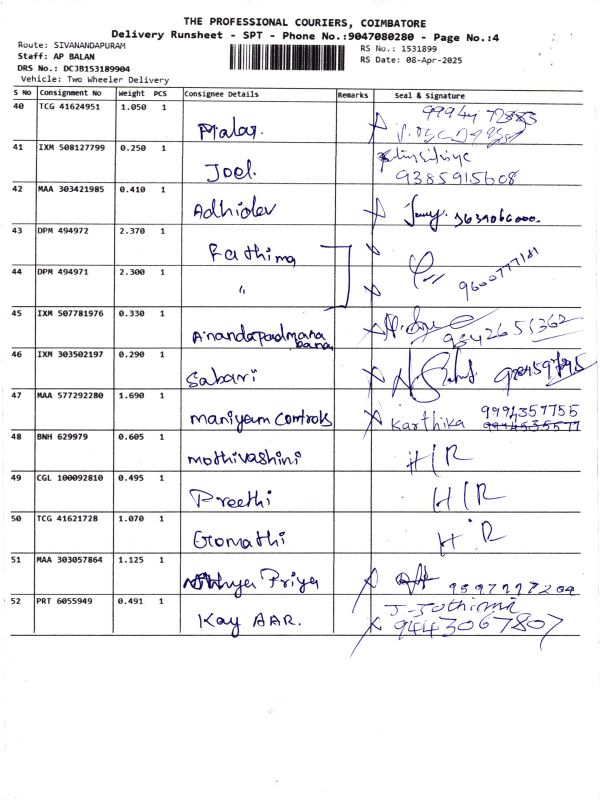 THE PROFESSIONAL COURIERS, COIMBATORE
Delivery Runsheet - SPT - Phone No.:9047080280 - Page No.:4
Route: SIVANANDAPURAM
RS No.: 1531899
Staff: AP BALAN
RS Date: 08-Apr-2025
DRS No.: DCJB153189904
Vehicle: Two Wheeler Delivery
S No Consignment No Weight PCS Consignee Details Remarks Seal & Signature
40 TCG 41624951 1.050 1 Malar.
41 IXM 508127799 0.250 1 Joel. 9385915608
42 MAA 303421985 0.410 1 Adhidev
43 DPM 494972 2.370 1 Fathima
44 DPM 494971 2.300 1 " 9600777181
45 IXM 507781976 0.330 1 Anandapadmana
bana 9842655362
46 IXM 303502197 0.290 1 Sabari
47 MAA 577292280 1.690 1 Maniyam Controls Karthika 9994357755
48 BNH 629979 0.605 1 mothivashini H/R
49 CGL 100092810 0.495 1 Preethi H/R
50 TCG 41621728 1.070 1 Gomathi H R
51 MAA 303057864 1.125 1 Priya
52 PRT 6055949 0.491 1 Kay AAR. J-Jothimani
9443067807